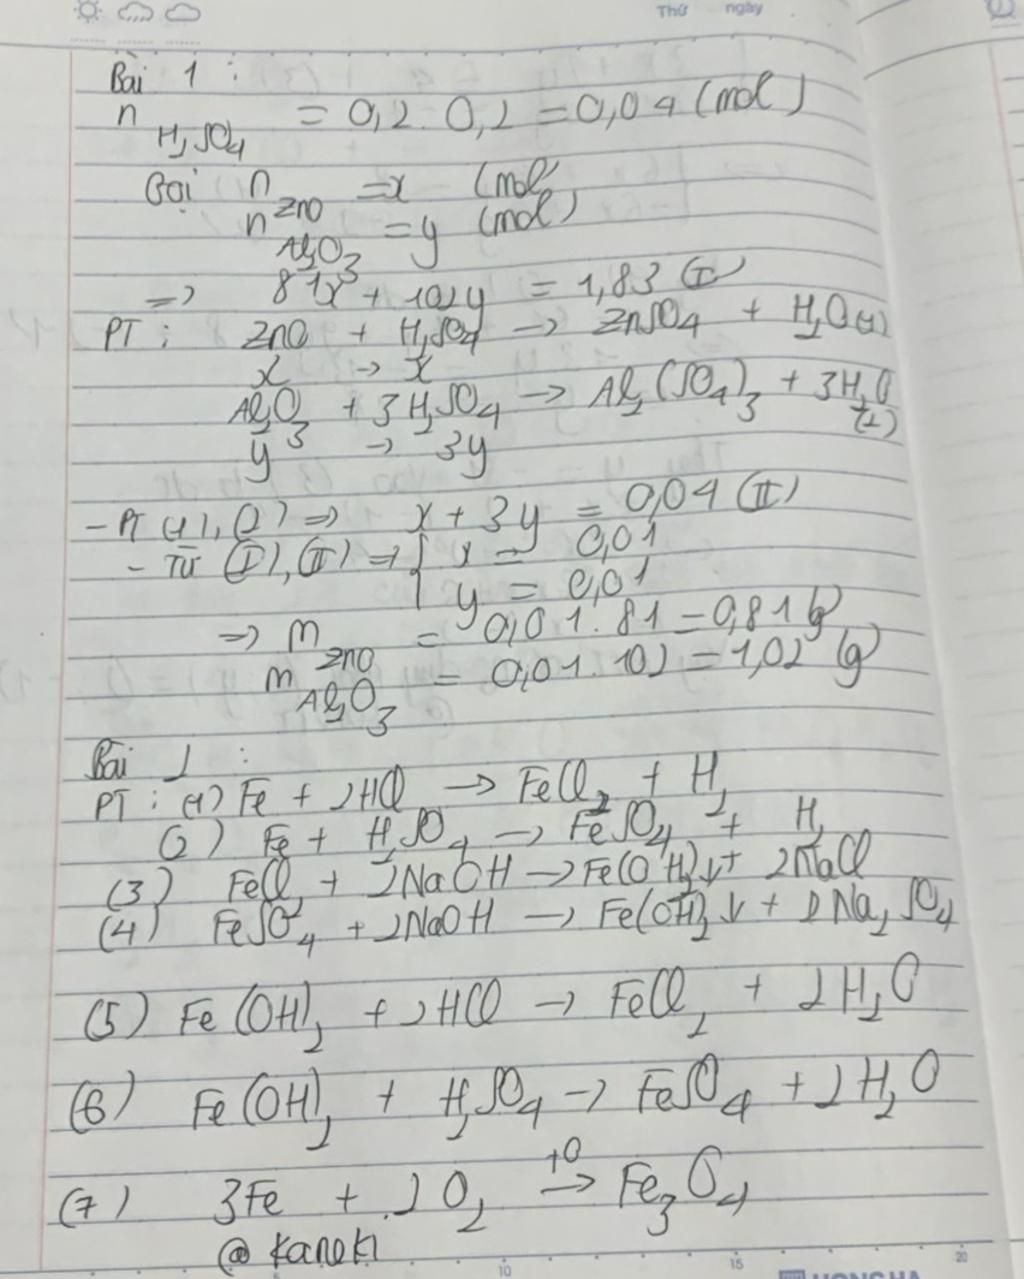 Thứ ngày
Bài 1 :
n H₂SO₄ = 0,2 . 0,2 = 0,04 (mol)
Gọi n ZnO = x (mol)
n Al₂O₃ = y (mol)
=> 81x + 102y = 1,83 (I)
PT : ZnO + H₂SO₄ → ZnSO₄ + H₂O (1)
x → x
Al₂O₃ + 3H₂SO₄ → Al₂(SO₄)₃ + 3H₂O (2)
y → 3y
- PT (1), (2) => x + 3y = 0,04 (II)
- Từ (I), (II) => { x = 0,01
y = 0,01
=> m ZnO = 0,01 . 81 = 0,81 (g)
m Al₂O₃ = 0,01 . 102 = 1,02 (g)
Bài 2 :
PT : (1) Fe + 2HCl → FeCl₂ + H₂
(2) Fe + H₂SO₄ → FeSO₄ + H₂
(3) FeCl₂ + 2NaOH → Fe(OH)₂↓ + 2NaCl
(4) FeSO₄ + 2NaOH → Fe(OH)₂↓ + Na₂SO₄
(5) Fe(OH)₂ + 2HCl → FeCl₂ + 2H₂O
(6) Fe(OH)₂ + H₂SO₄ → FeSO₄ + 2H₂O
(7) 3Fe + 2O₂ →(+O) Fe₃O₄
@ Kaneki
10 15 20
HONG HA